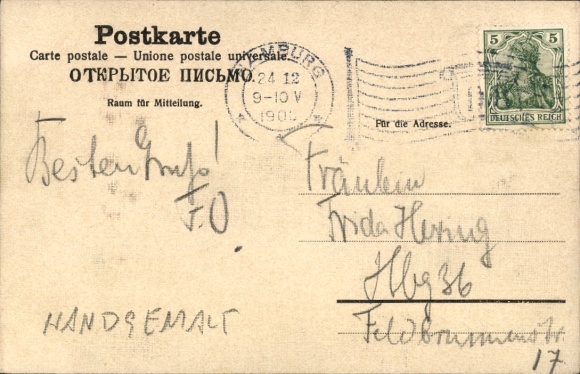 Postkarte
Carte postale — Unione postale universale.
ОТКРЫТОЕ ПИСЬМО.
Raum für Mitteilung.
Für die Adresse.
HAMBURG
24 12
9-10 V
5 5
DEUTSCHES REICH
Besten Gruß!
F.O.
HANDGEMALT
Fräulein
Frida Hering
Hbg 36
Feldbrunnenstr
17